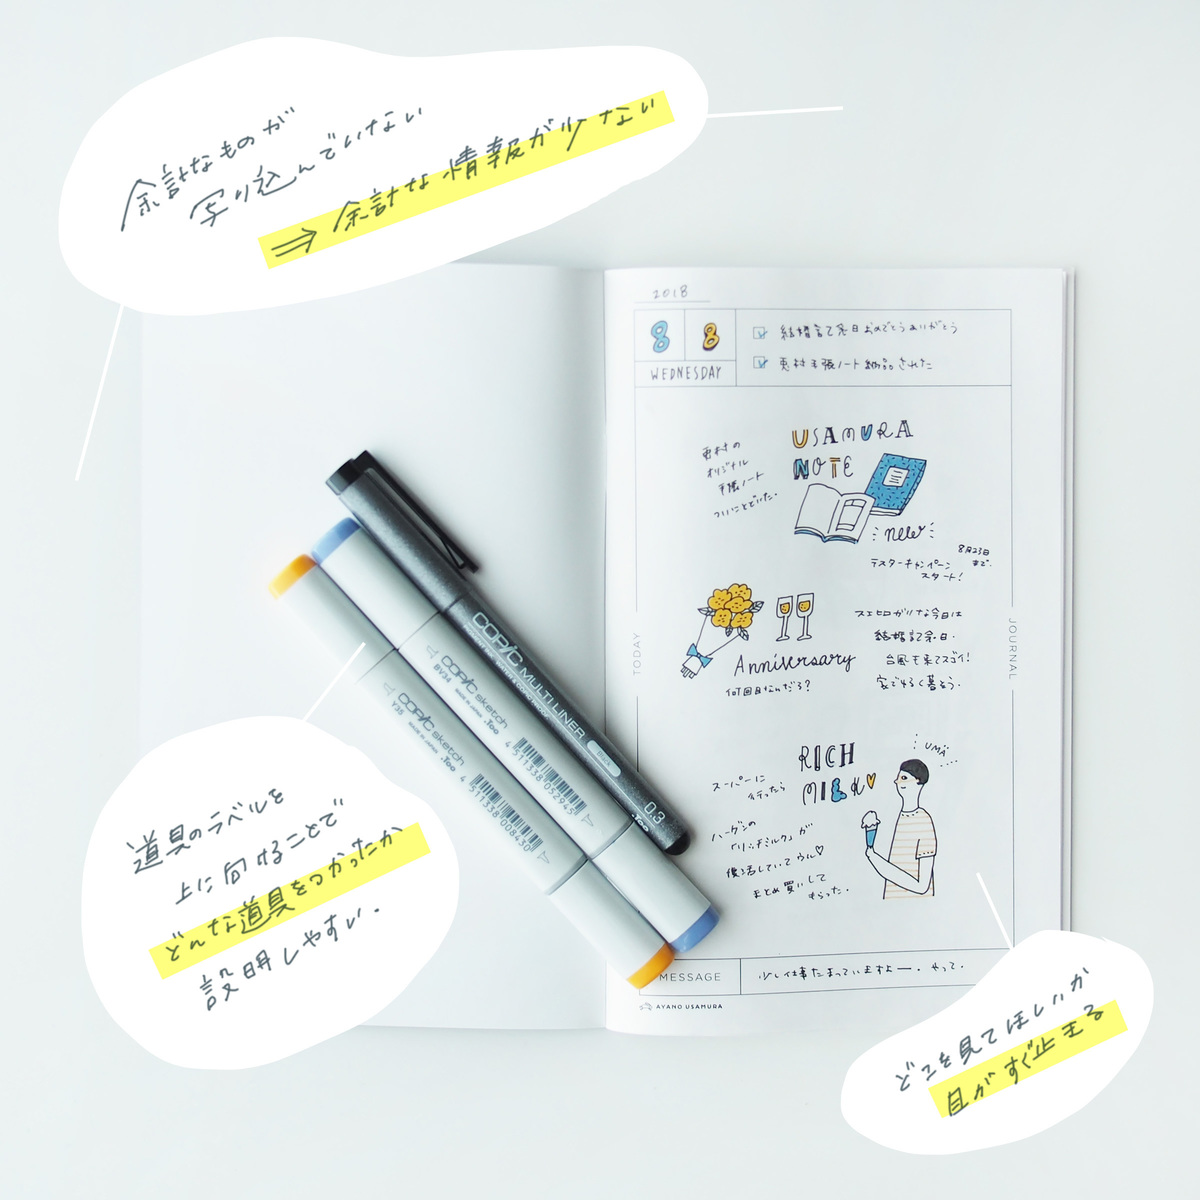 余計なものが
写り込んでいない
⇒ 余計な情報が少ない
2018
8 8
WEDNESDAY
結婚記念日おめでとうありがとう
兎村手帳ノート納品された
兎村の
オリジナル
手帳ノート
ついにとどいた.
USAMURA
NOTE
new
8月23日
まで.
テスターキャンペーン
スタート!
TODAY
JOURNAL
Anniversary
何回目なんだろ?
スエヒロガリな今日は
結婚記念日.
台風も来てスゴイ!
家でゆるく暮らう.
RICH
MILK
UMA
スーパーに
行ったら
ハーゲンの
「リッチミルク」が
復活していてウル♡
まとめ買いして
もらった.
MESSAGE
少し仕事たまっていますよー. やって.
AYANO USAMURA
COPIC MULTI LINER
Black
0.3
.Too
COPIC sketch
BV34
MADE IN JAPAN
.Too
4 511338 052945
COPIC sketch
Y35
MADE IN JAPAN
.Too
4 511338 008430
道具のラベルを
上に向けることで
どんな道具をつかったか
説明しやすい.
どこを見てほしいか
目がすぐ止まる